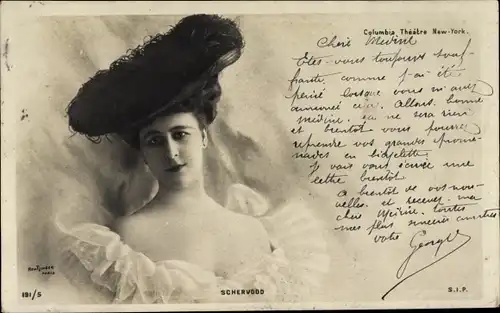 Columbia Théâtre New-York.
Chère
Etes-vous toujours souf-
frante comme j'ai été
peiné lorsque vous m'avez
annoncé cela. Allons, bonne
ce ne sera rien
et bientôt vous pourrez
reprendre vos grandes prome-
nades en bicyclette.
Je vais vous écrire une
lettre bientôt.
A bientôt de vos nou-
velles, et recevez, ma
chère toutes
mes plus sincères amitiés
votre
Georges
Reutlinger
Paris
191/5
SCHERWOOD
S.I.P.